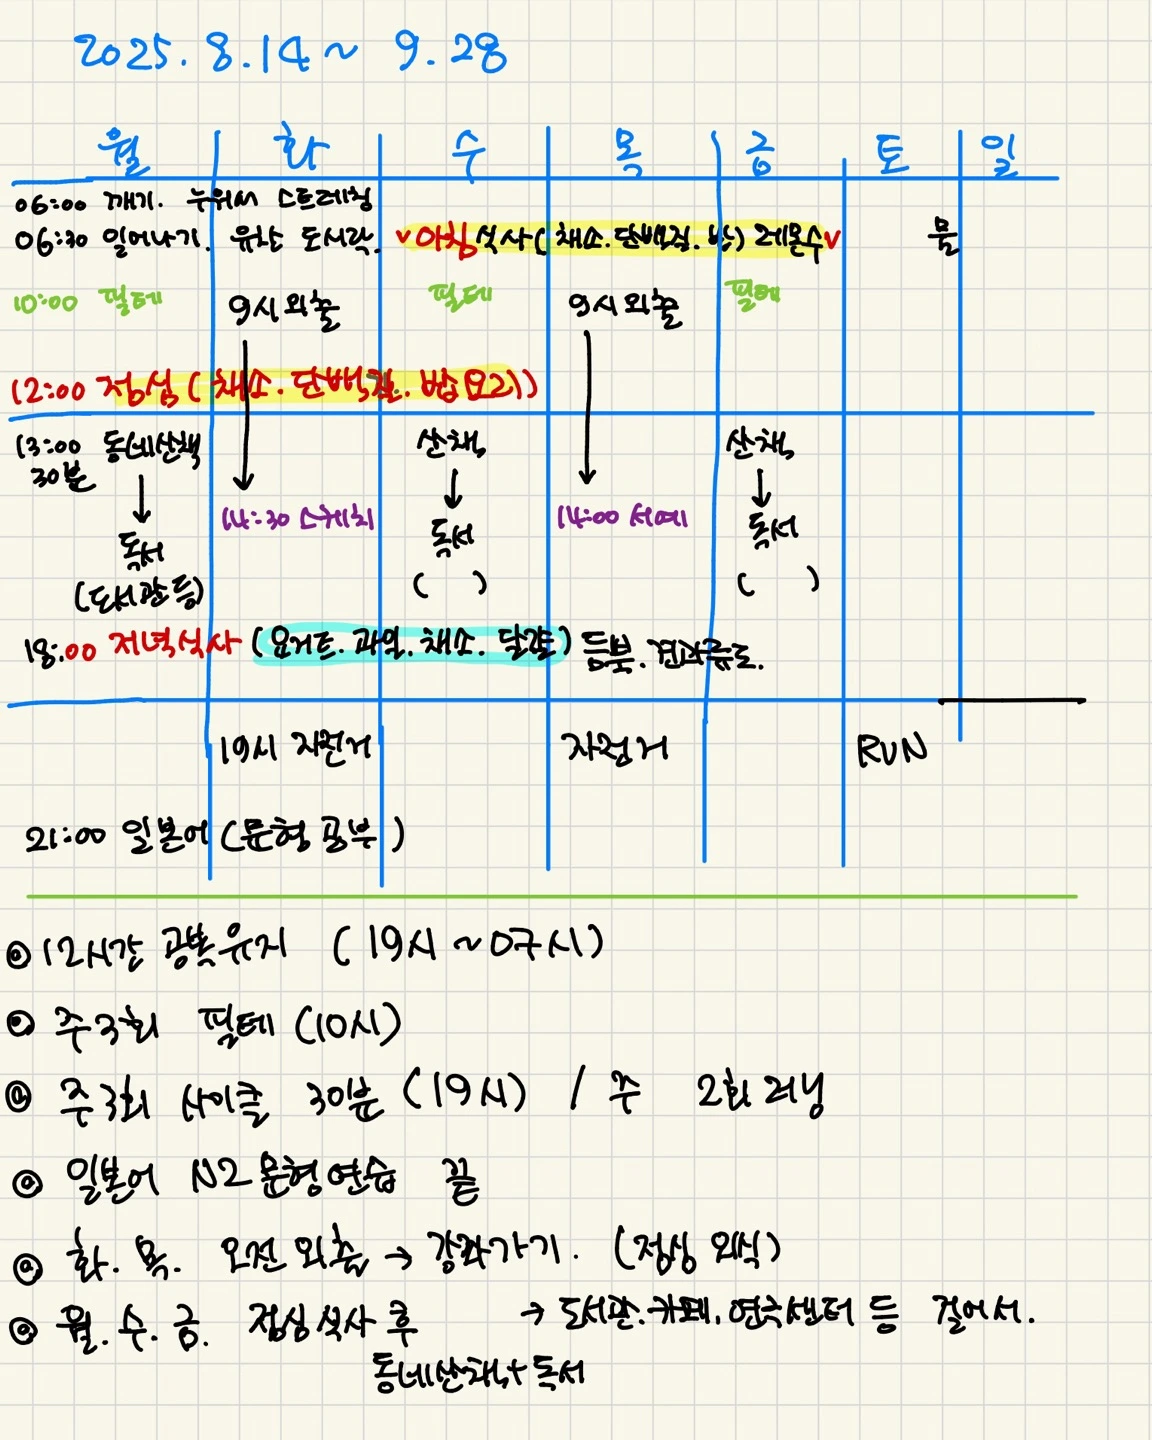 2025. 8. 14 ~ 9. 28
월 화 수 목 금 토 일
06:00 깨기. 누워서 스트레칭
06:30 일어나기. 유찬 도시락. v아침식사(채소.단백질.밥) 레몬수v 물
10:00 필테 9시외출 필테 9시외출 필테
12:00 점심(채소.단백질.밥요리)
13:00 동네산책 산책 산책
30분
14:30 스케치 14:00 서예
독서 독서 독서
(도서관등) ( ) ( )
18:00 저녁식사 (요거트.과일.채소.달걀) 등푸.견과류도.
19시 자전거 자전거 RUN
21:00 일본어(문형공부)
12시간 공복유지 (19시~07시)
주3회 필테(10시)
주3회 사이클 30분(19시) / 주 2회 러닝
일본어 N2문형연습 끝
화.목. 오전외출 → 강좌가기. (점심외식)
월.수.금. 점심식사 후 → 도서관.카페.연수센터 등 걸어서.
동네산책+독서